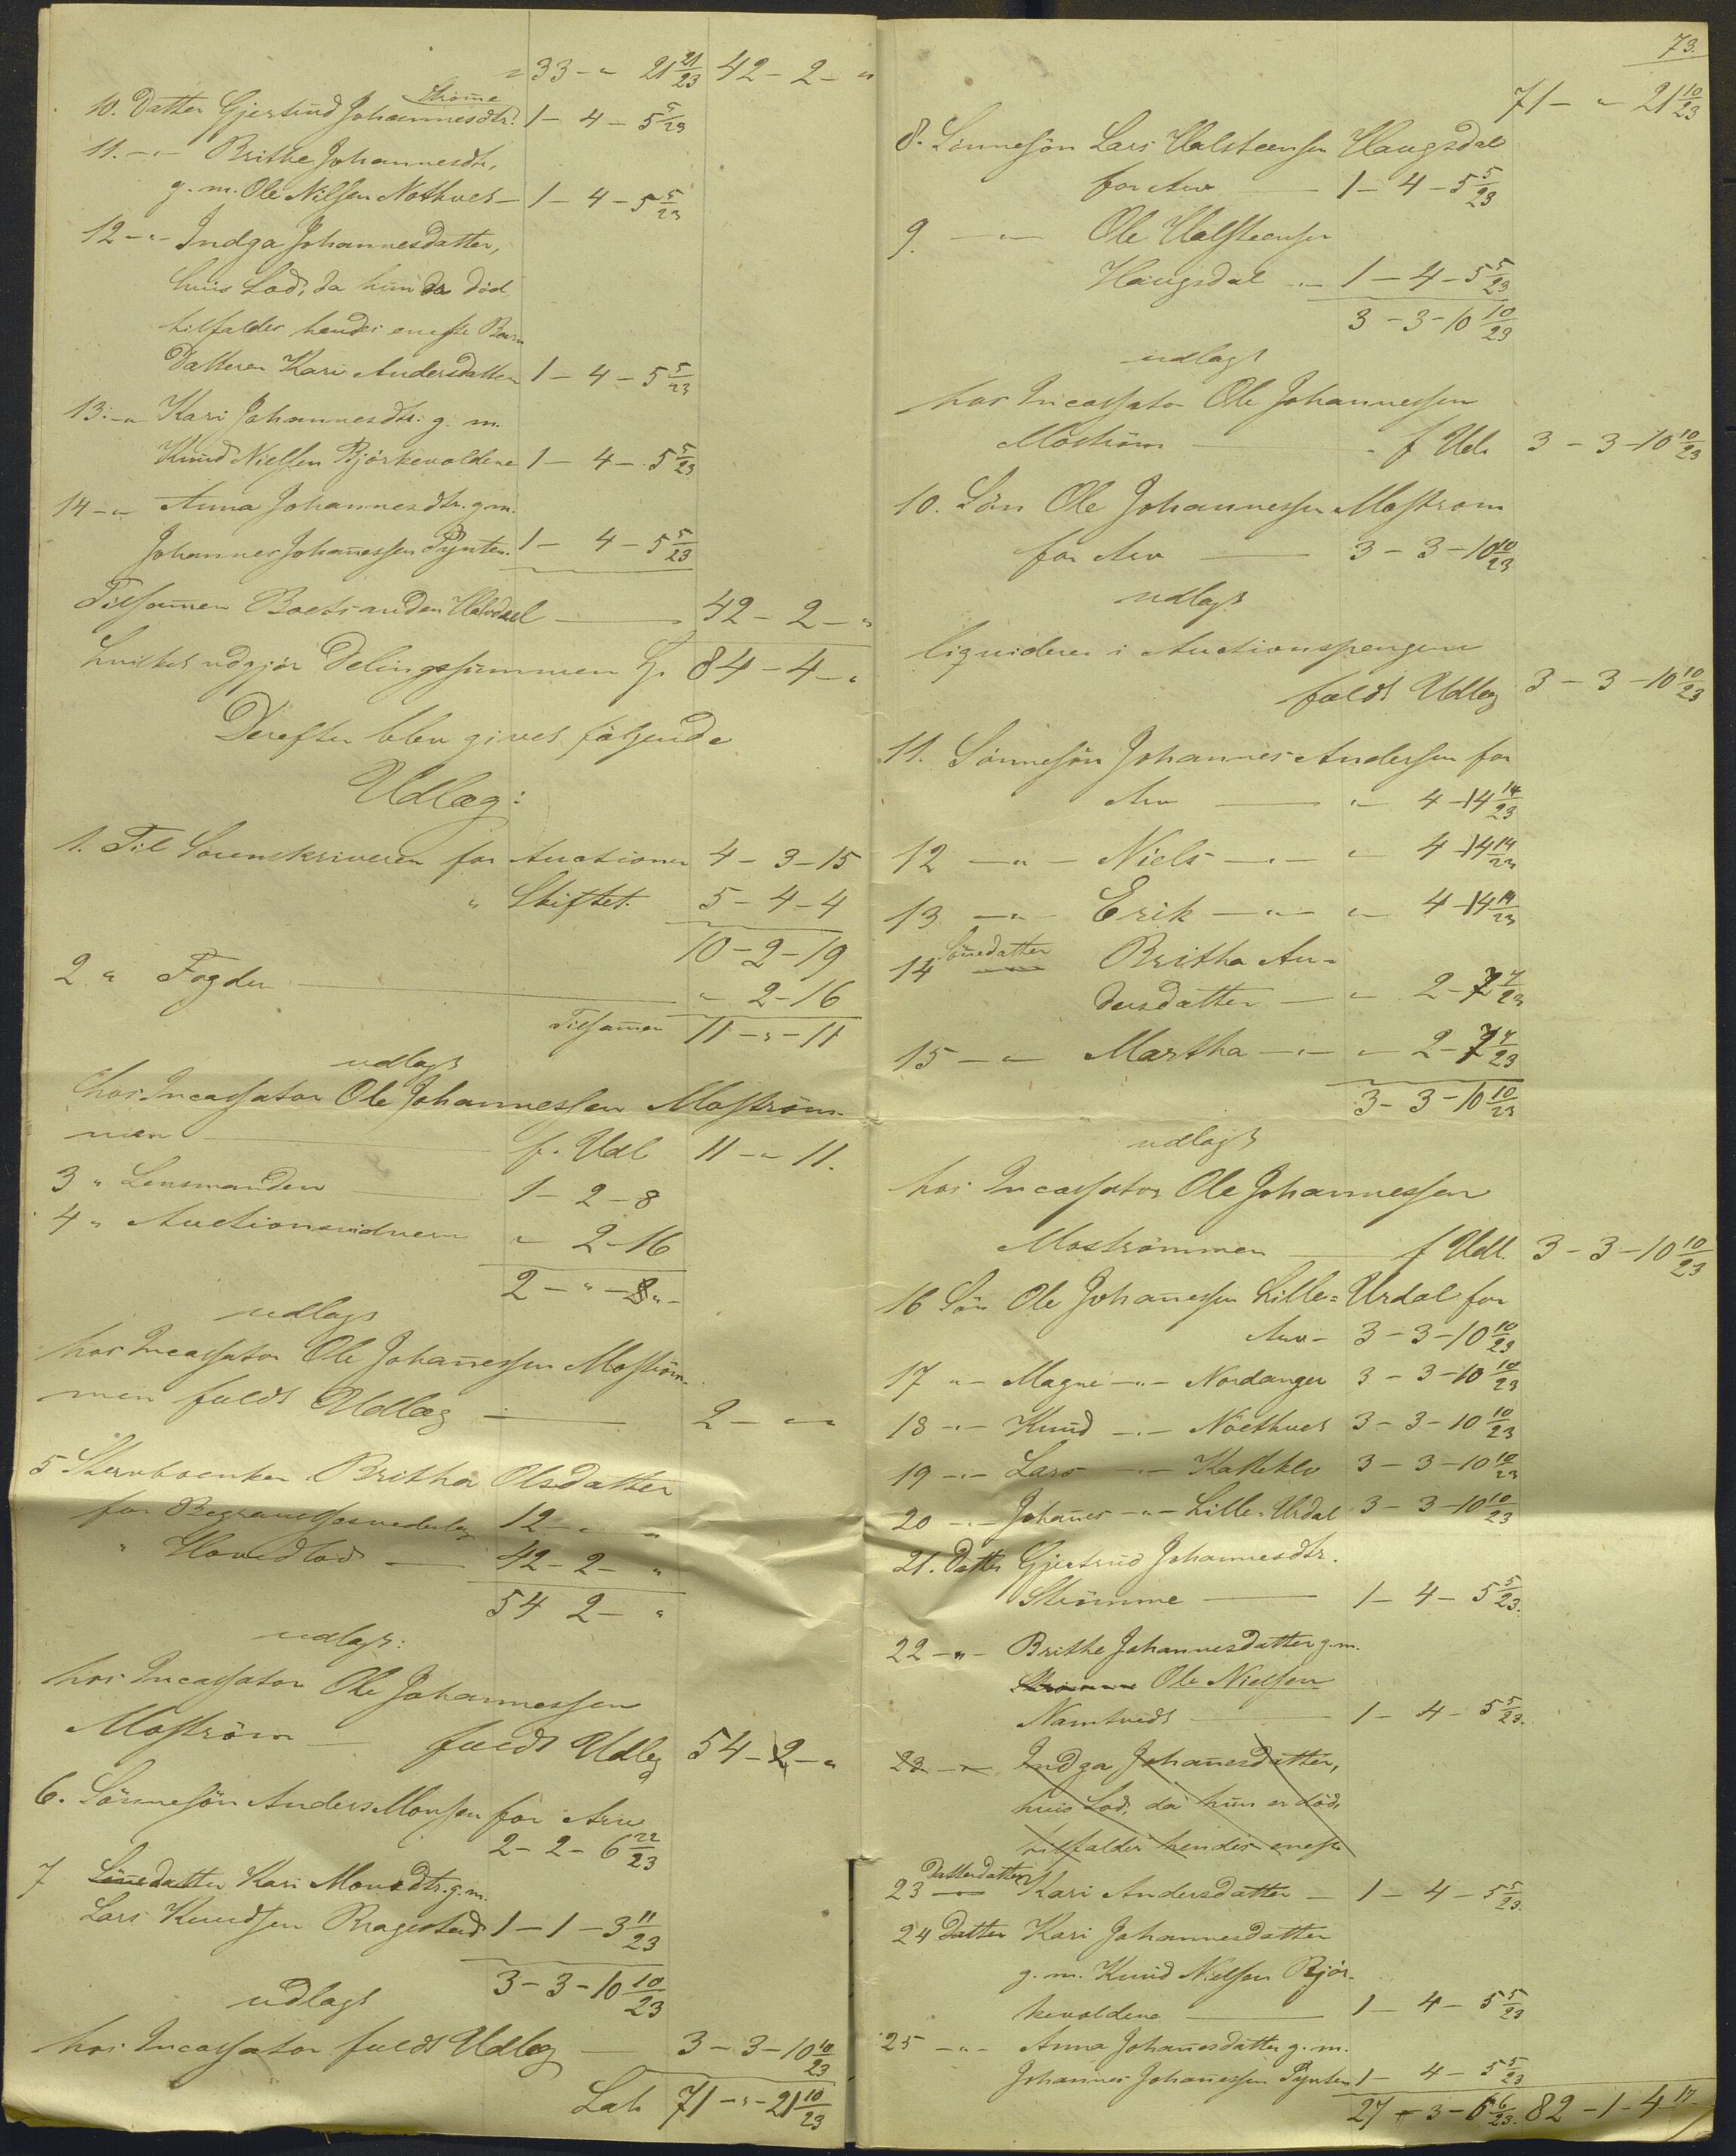 " 33 - " 21 21/23 42 - 2 - "
Strømme
10. Datter Gjertrud Johannesdtr. 1 - 4 - 5 5/23
11. - " - Brithe Johannesdtr,
g. m. Ole Nilsen Nøthvet - 1 - 4 - 5 5/23
12 - " - Indga Johannesdatter,
hvis Lod, da hun er død
tilfalder hendes eneste Barn
Datteren Kari Andersdatter 1 - 4 - 5 5/23
13. - " Kari Johannesdtr. g. m.
Knud Nielsen Björkevoldene 1 - 4 - 5 5/23
14 - " Anna Johannesdtr. g. m.
Johannes Johañessen Pynten. 1 - 4 - 5 5/23
Tilsam̃en Boets anden Halvdeel 42 - 2 - "
hvilket udgjör Delingssummen 84 - 4 - "
Derefter blev givet følgende
Udlæg:
1. Til Sorenskriveren for Auctionen 4 - 3 - 15
" Skiftet. 5 - 4 - 4
10 - 2 - 19
2 " Fogden " 2 - 16
Tilsam̃en 11 - " - 11
udlagt
hos Incassator Ole Johannessen Moström-
men f. Udl 11 - " 11.
3 " Lensmanden 1 - 2 - 8
4 " Auctionsvidnerne " 2 - 16
2 - " - " -
udlagt
hos Incassator Ole Johañessen Moström-
men fuldt Udlæg 2 - " "
5 Stervboenken Britha Olsdatter
for Begravelsesvederlag 12 - " "
" Hovedlod 42 - 2 - "
54 2 - "
udlagt:
hos Incassator Ole Johannessen
Moström fuldt Udlæg 54 - 2 - "
6. Sönnesön Anders Monsen for Arv
2 - 2 - 6 22/23
7 Sön̄edatter Kari Monsdtr. g. m.
Lars Knudsen Bragestad 1 - 1 - 3 11/23
3 - 3 - 10 10/23
udlagt
hos Incassator fuldt Udlæg 3 - 3 - 10 10/23
Lat. 71 - " - 21 10/23
73.
71 - " 21 10/23
8. Sönnesön Lars Halsteensen Haugsdal
for Arv 1 - 4 - 5 5/23
9. - " - Ole Halsteensen
Haugsdal - " - 1 - 4 - 5 5/23
3 - 3 - 10 10/23
udlagt
hos Incassator Ole Johannessen
Moström f Udl. 3 - 3 - 10 10/23
10. Sön Ole Johannessen Moström
for Arv 3 - 3 - 10 10/23
udlagt
liquiderer i Auctionspengene
fuldt Udlæg 3 - 3 - 10 10/23
11. Sönnesön Johannes Andersen for
Arv " - 4 - 14 14/23
12 - " - Niels - " - " 4 - 14 14/23
13 - " - Erik - " - " 4 - 14 14/23
Sön̄edatter
14 Britha An-
dersdatter - " 2 - 7 7/23
15 - " Martha - " - " 2 - 7 7/23
3 - 3 - 10 10/23
udlagt
hos Incassator Ole Johannessen
Moströmmen f Udl. 3 - 3 - 10 10/23
16 Sön Ole Johañessen Lille-Urdal for
Arv - 3 - 3 - 10 10/23
17 " - Magne - " - Nordanger 3 - 3 - 10 10/23
18 - " - Knud - " - Nöethvet 3 - 3 - 10 10/23
19 - " - Lars - " - Katteklev 3 - 3 - 10 10/23
20 - " - Johañes - " - Lille-Urdal 3 - 3 - 10 10/23
21. Datter Gjertrud Johannesdtr.
Strömme 1 - 4 - 5 5/23.
22 - " - Brithe Johannesdatter g. m.
Strömme Ole Nielsen
Namtvedt 1 - 4 - 5 5/23.
23 - " - Indga Johañesdatter,
hvis Lod, da hun er död,
tilfalder hendes eneste
Datterdatter
23 Kari Andersdatter - 1 - 4 - 5 5/23.
24 Datter Kari Johannesdatter
g. m. Knud Nielsen Björ-
kevoldene 1 - 4 - 5 5/23
25 - " - Anna Johañesdatter g. m.
Johannes Johañessen Pynten 1 - 4 - 5 5/23
27 - 3 - 6 6/23. 82 - 1 - 4 17